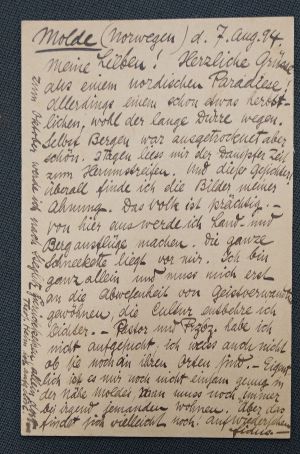 Molde (Norwegen) d. 7. Aug. 94
meine Lieben! Herzliche Grüsse
aus einem nordischen Paradiese!
Allerdings einem schon etwas herbst-
lichen, wohl der lange Dürre wegen.
Selbst Bergen war ausgetrocknet aber
schön. 3 Tagen liess mir der Dampfer Zeit
zum Herumstreifen. Und diese Gesichter!
überall finde ich die Bilder meiner
Ahnung. Das Volk ist prächtig. –
von hier aus werde ich Land- und
Bergausflüge machen. Die ganze
Schneekette liegt vor mir. Ich bin
ganz allein und muss mich erst
an die Abwesenheit von Geistverwandten
gewöhnen, die Cultur entbehre ich
leichter. – Pastor und habe ich
nicht aufgesucht, ich weiss auch nicht
ob sie noch an ihren Orten sind. – Eigent-
lich ist es mir noch nicht einsam genug in
der Nähe Moldes man muss noch immer
bei irgend jemanden wohnen. Aber das
findet sich vielleicht noch! auf Wiedersehen
Fidus –
zum Oktober werde ich nach